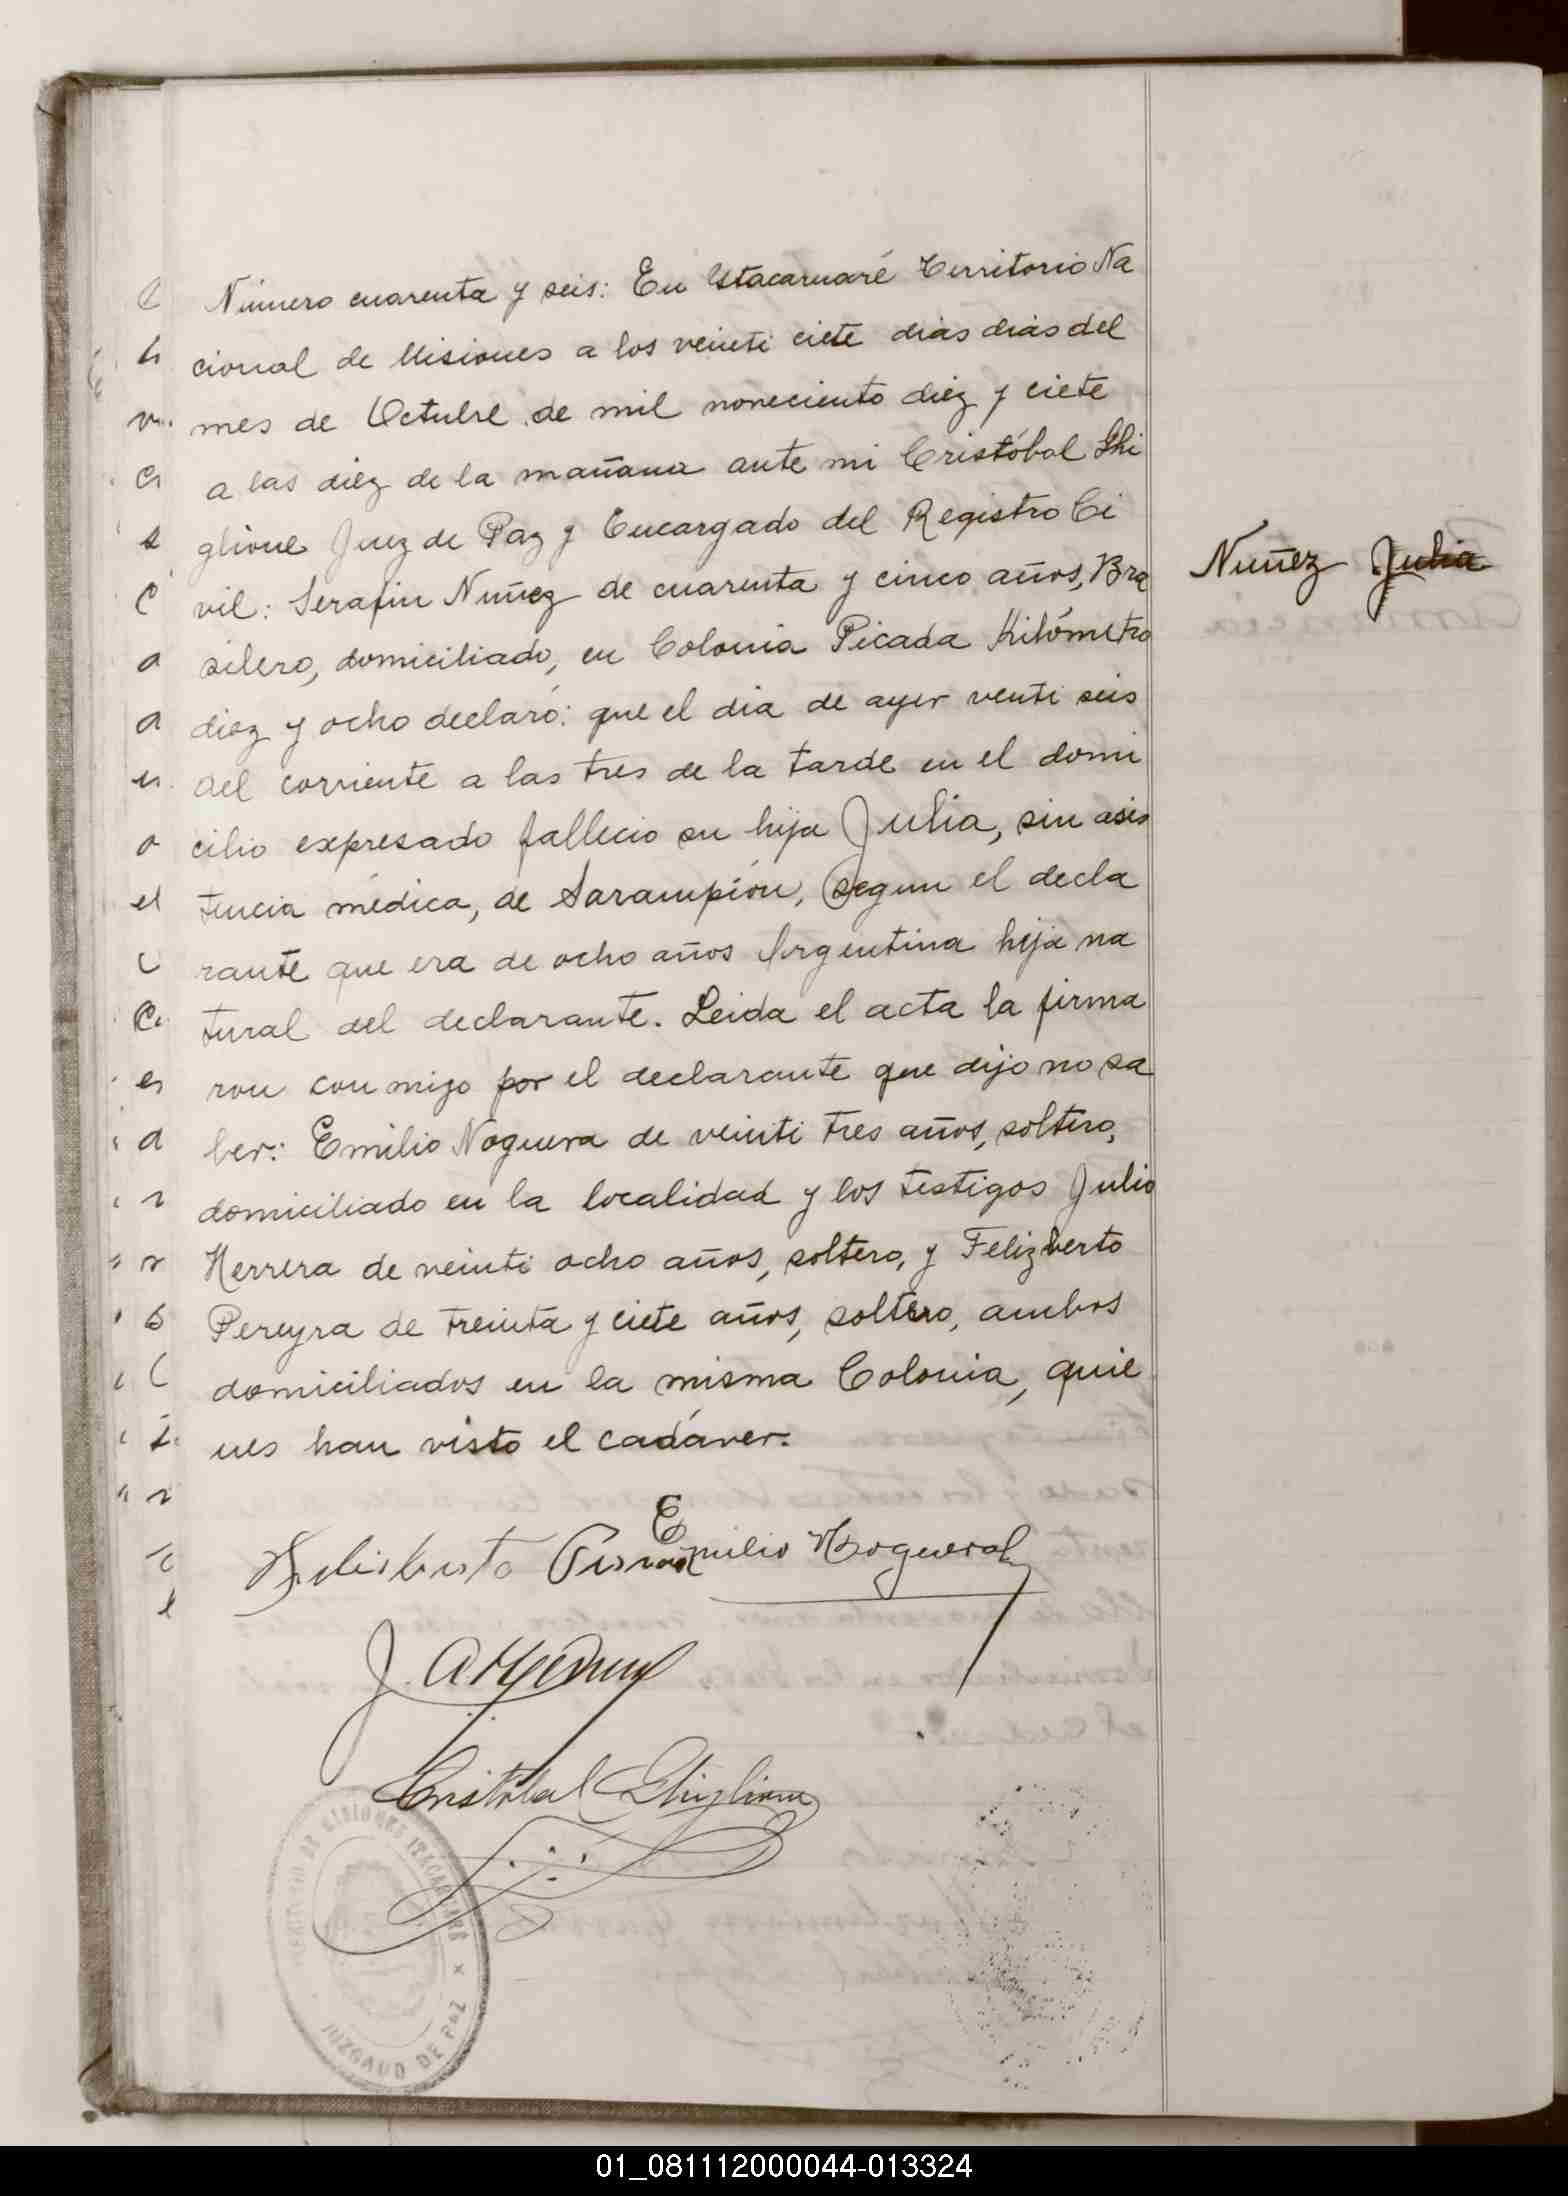 Número cuarenta y seis: En Itacaruaré Territorio Na
cional de Misiones a los veinti ciete dias dias del
mes de Octubre de mil noneciento diez y ciete
a las diez de la mañana ante mi Cristóbal Ghi
glione Juez de Paz y Encargado del Registro Ci
vil: Serafin Nuñez de cuarenta y cinco años, Bra
silero, domiciliado, en Colonia Picada Kilómetro
diez y ocho declaró: que el dia de ayer venti seis
del corriente a las tres de la tarde en el domi
cilio expresado fallecio su hija Julia, sin asis
tencia médica, de Sarampión, segun el decla
rante que era de ocho años Argentina hija na
tural del declarante. Leida el acta la firma
ron con migo por el declarante que dijo no sa
ber: Emilio Noguera de veinti tres años, soltero,
domiciliado en la localidad y los testigos Julio
Herrera de veinti ocho años, soltero, y Felizberto
Pereyra de treinta y ciete años, soltero, ambos
domiciliados en la misma Colonia, quie
nes han visto el cadáver.
Nuñez Julia
Emilio Noguera
Cristobal Ghiglione
MISIONES ITACARUARÉ
JUZGADO DE PAZ
01_081112000044-013324